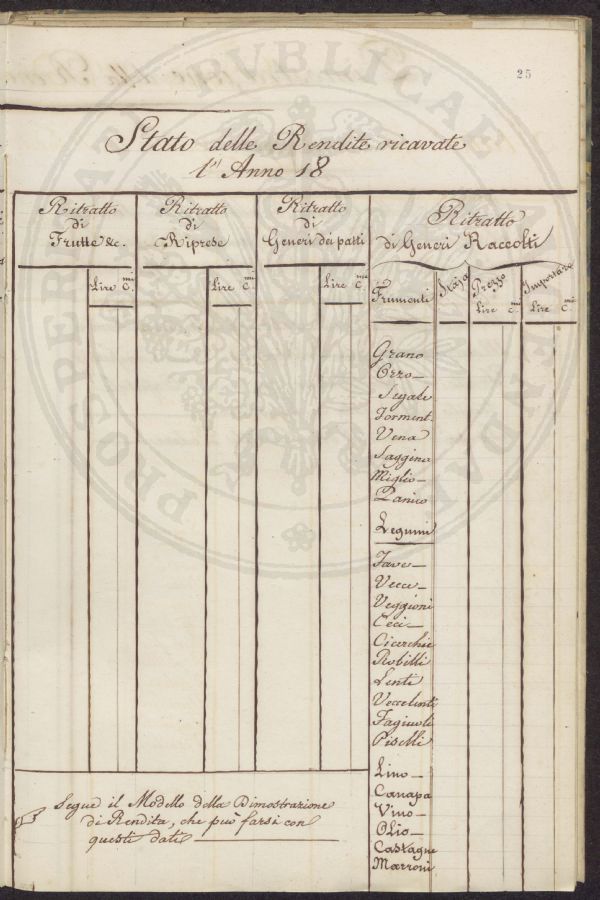 25
Stato delle Rendite ricavate
l' Anno 18
Ritratto
di
Frutte &c.
Lire C.mi
Ritratto
di
Riprese
Lire C.mi
Ritratto
di
Generi dei patti
Lire C.mi
Ritratto
di Generi Raccolti
Frumenti
Staja
Prezzo
Lire C.mi
Importare
Lire C.mi
Grano
Orzo
Segale
Torment.
Vena
Saggina
Miglio
Panico
Legumi
Fave
Vecce
Veggioni
Ceci
Cicerchie
Robilli
Lenti
Veccelenti
Fagiuoli
Piselli
Lino
Canapa
Vino
Olio
Castagne
Marroni
Segue il Modello della Dimostrazione
di Rendita, che può farsi con
questi dati
PUBLICAE
PROSPERITATI